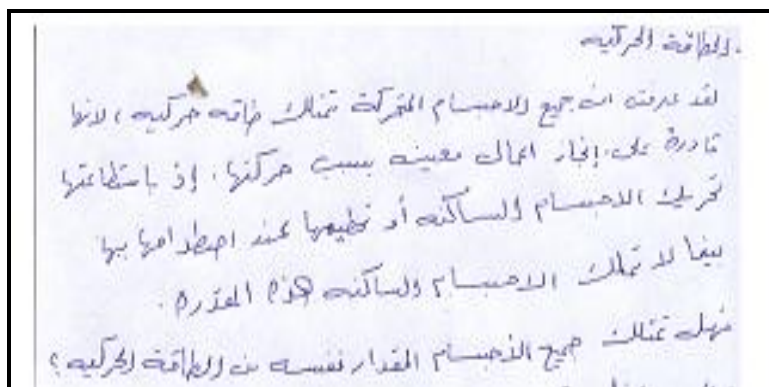 الطاقة الحركيه
لقد عرفت ان جميع الاجسام المتحركة تمتلك طاقه حركيه ، لانها
قادرة على إنجاز اعمال معينه بسبب حركتها ، إذ باستطاعتها
تحريك الاجسام الساكنه أو تحطيمها عند اصطدامها بها
بينما لا تملك الاجسام الساكنه هذه القدره .
فهل تمتلك جميع الأجسام المقدار نفسه من الطاقة الحركيه ؟